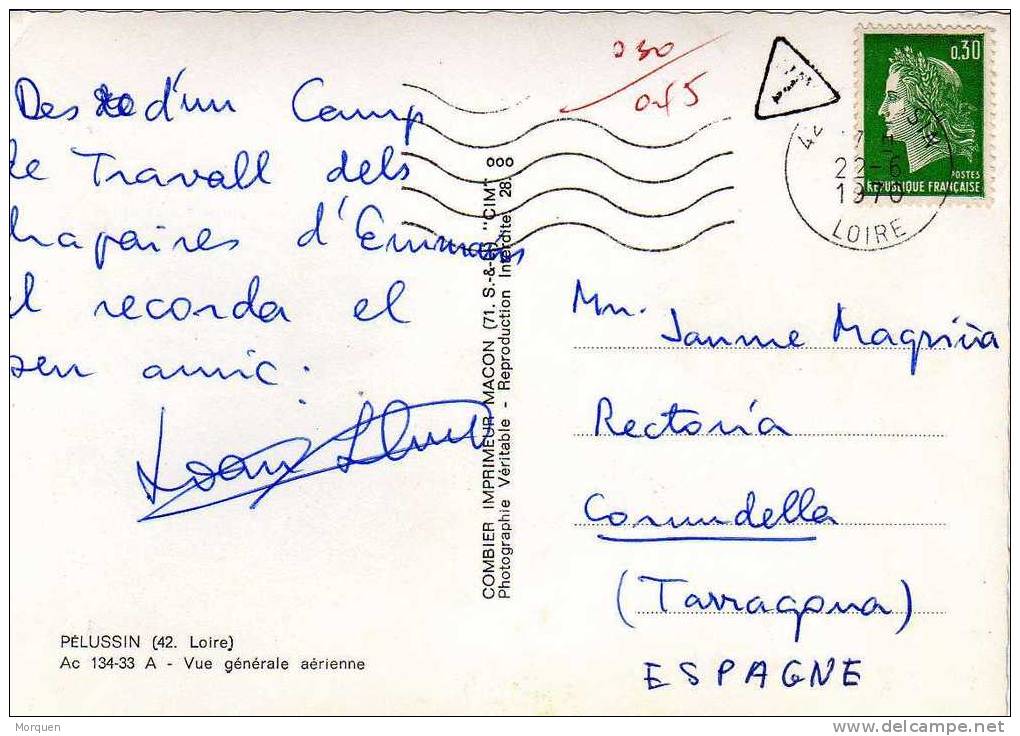 Des d'un Camp
de Travall dels
drapaires d'Emmaus
el recorda el
seu amic.
PÉLUSSIN (42. Loire)
Ac 134-33 A - Vue générale aérienne
COMBIER IMPRIMEUR MACON (71. S.-&-L.) "CIM" ooo
Photographie Véritable - Reproduction Interdite 28.
030
0.45
T
0,30
POSTES
REPUBLIQUE FRANÇAISE
42
22-6
1970
LOIRE
Mn. Jaume Magriñà
Rectoria
Cornudella
(Tarragona)
ESPAGNE
Morquen
delcampe.net